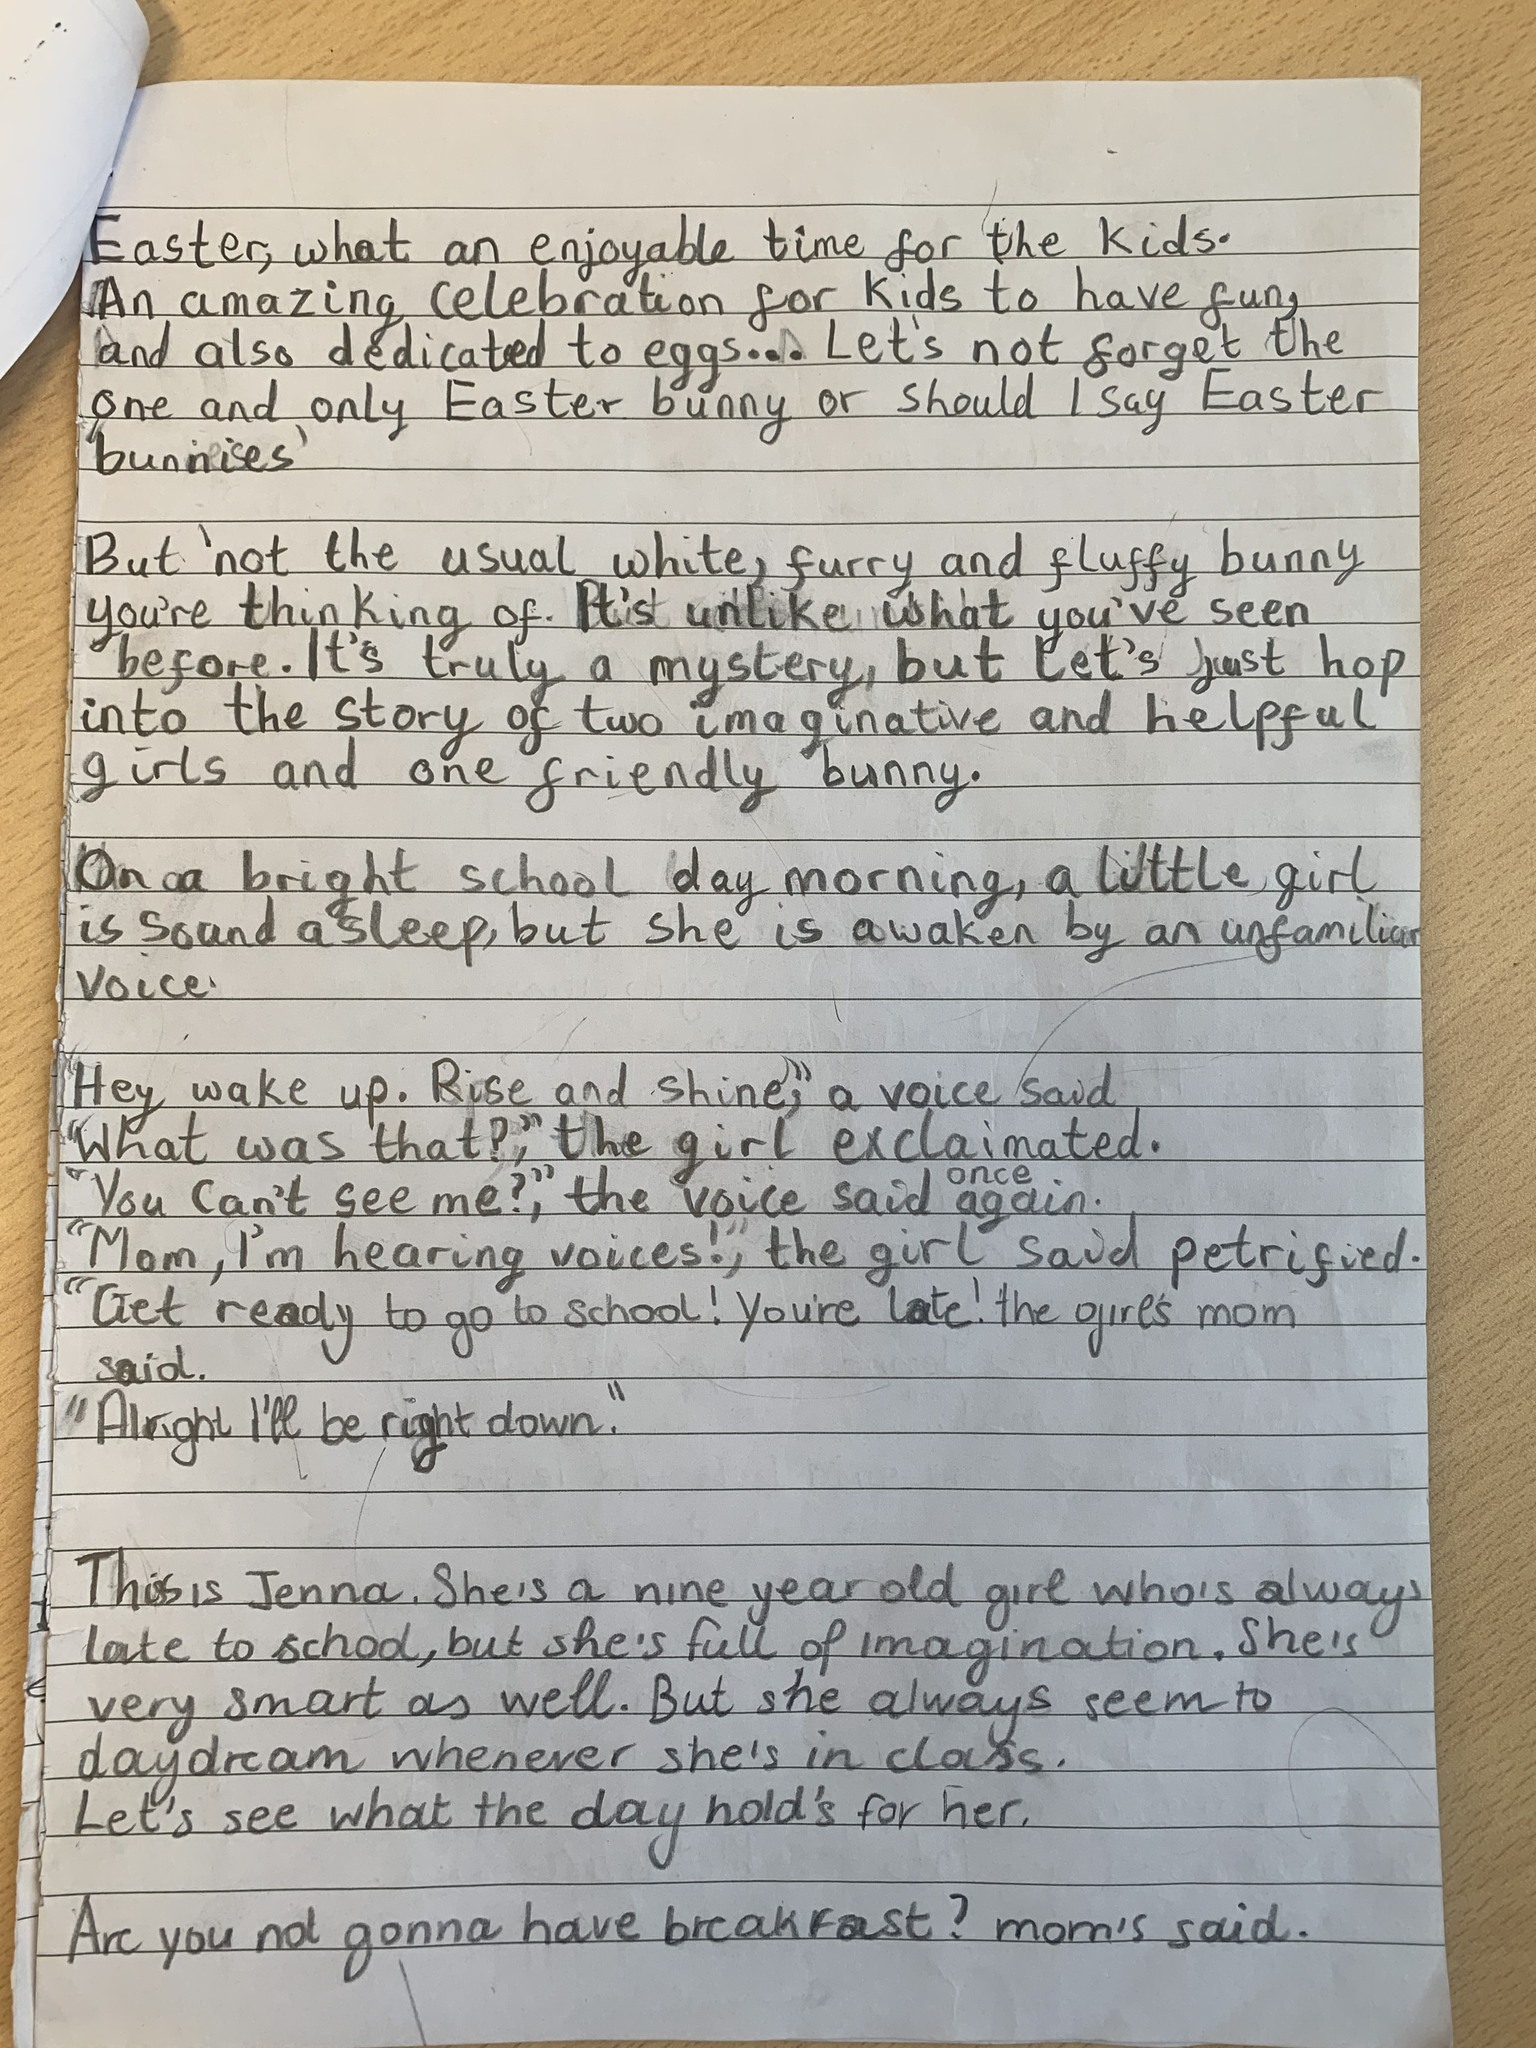 Easter, what an enjoyable time for the kids.
An amazing celebration for kids to have fun,
and also dedicated to eggs... Let's not forget the
one and only Easter bunny or should I say Easter
bunnises'
But 'not the usual white, furry and fluffy bunny
you're thinking of. It's unlike what you've seen
before. It's truly a mystery, but let's just hop
into the story of two imaginative and helpful
girls and one friendly bunny.
On a bright school day morning, a little girl
is sound asleep, but she is awaken by an unfamiliar
voice.
"Hey wake up. Rise and shine," a voice said
"What was that?," the girl exclaimated.
"You can't see me?," the voice said once again.
"Mom, I'm hearing voices!," the girl said petrified.
"Get ready to go to school! You're late! the girl's mom
said.
"Alright I'll be right down."
This is Jenna. She's a nine year old girl who's always
late to school, but she's full of imagination. She's
very smart as well. But she always seem to
daydream whenever she's in class.
Let's see what the day hold's for her.
Are you not gonna have breakfast? mom's said.